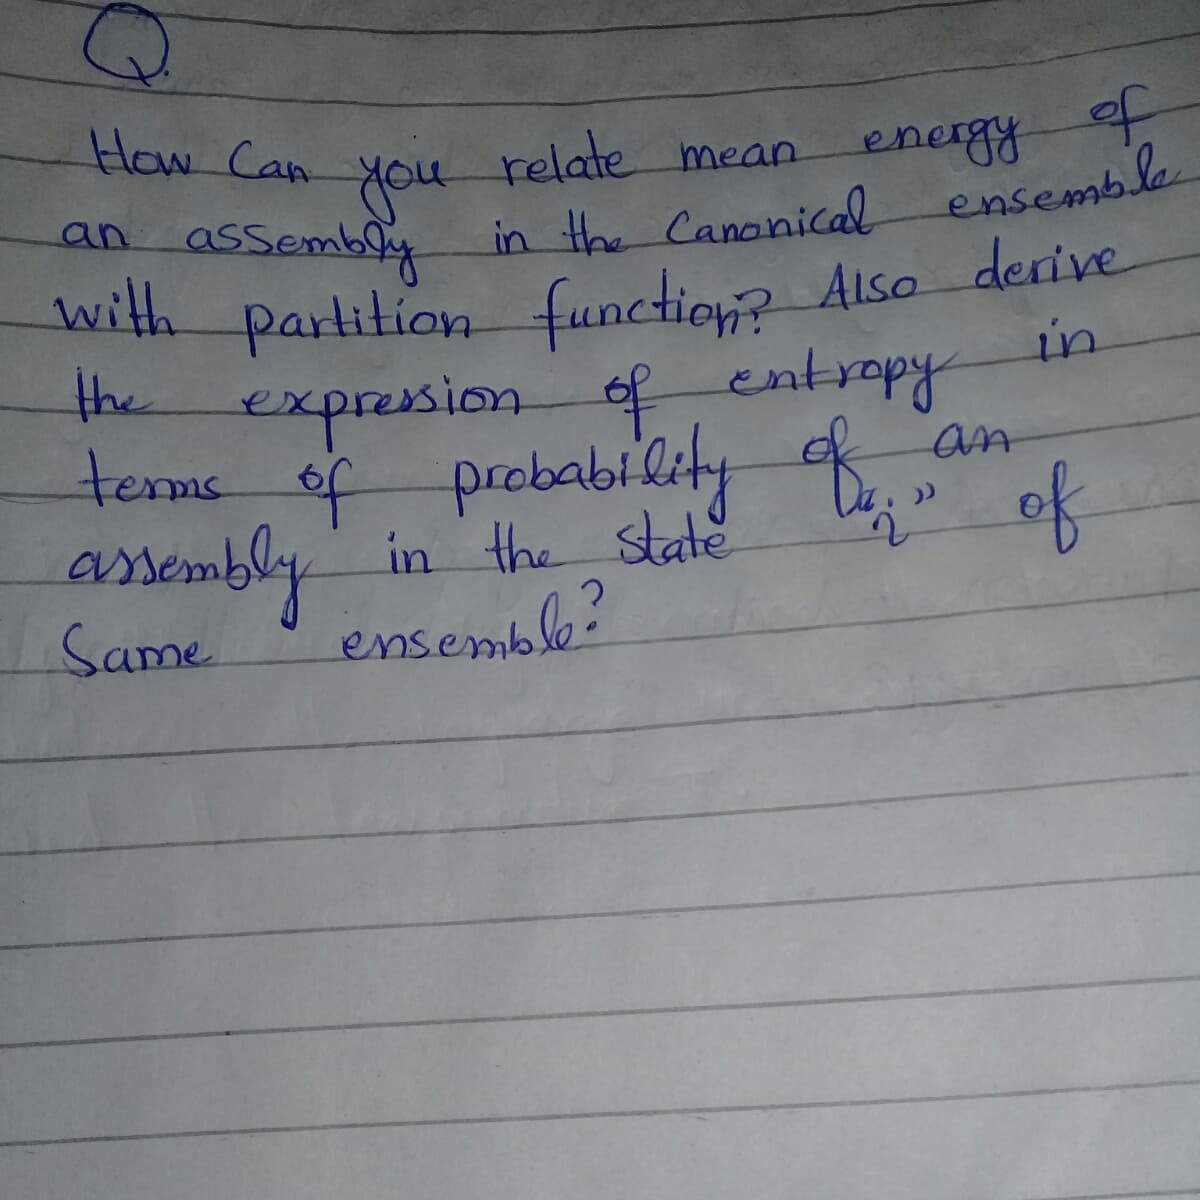 Q.
How Can you relate mean energy of
an assembly in the Canonical ensemble
with partition function? Also derive
the expression of entropy in
terms of probability of an
assembly in the state "i" of
Same ensemble?